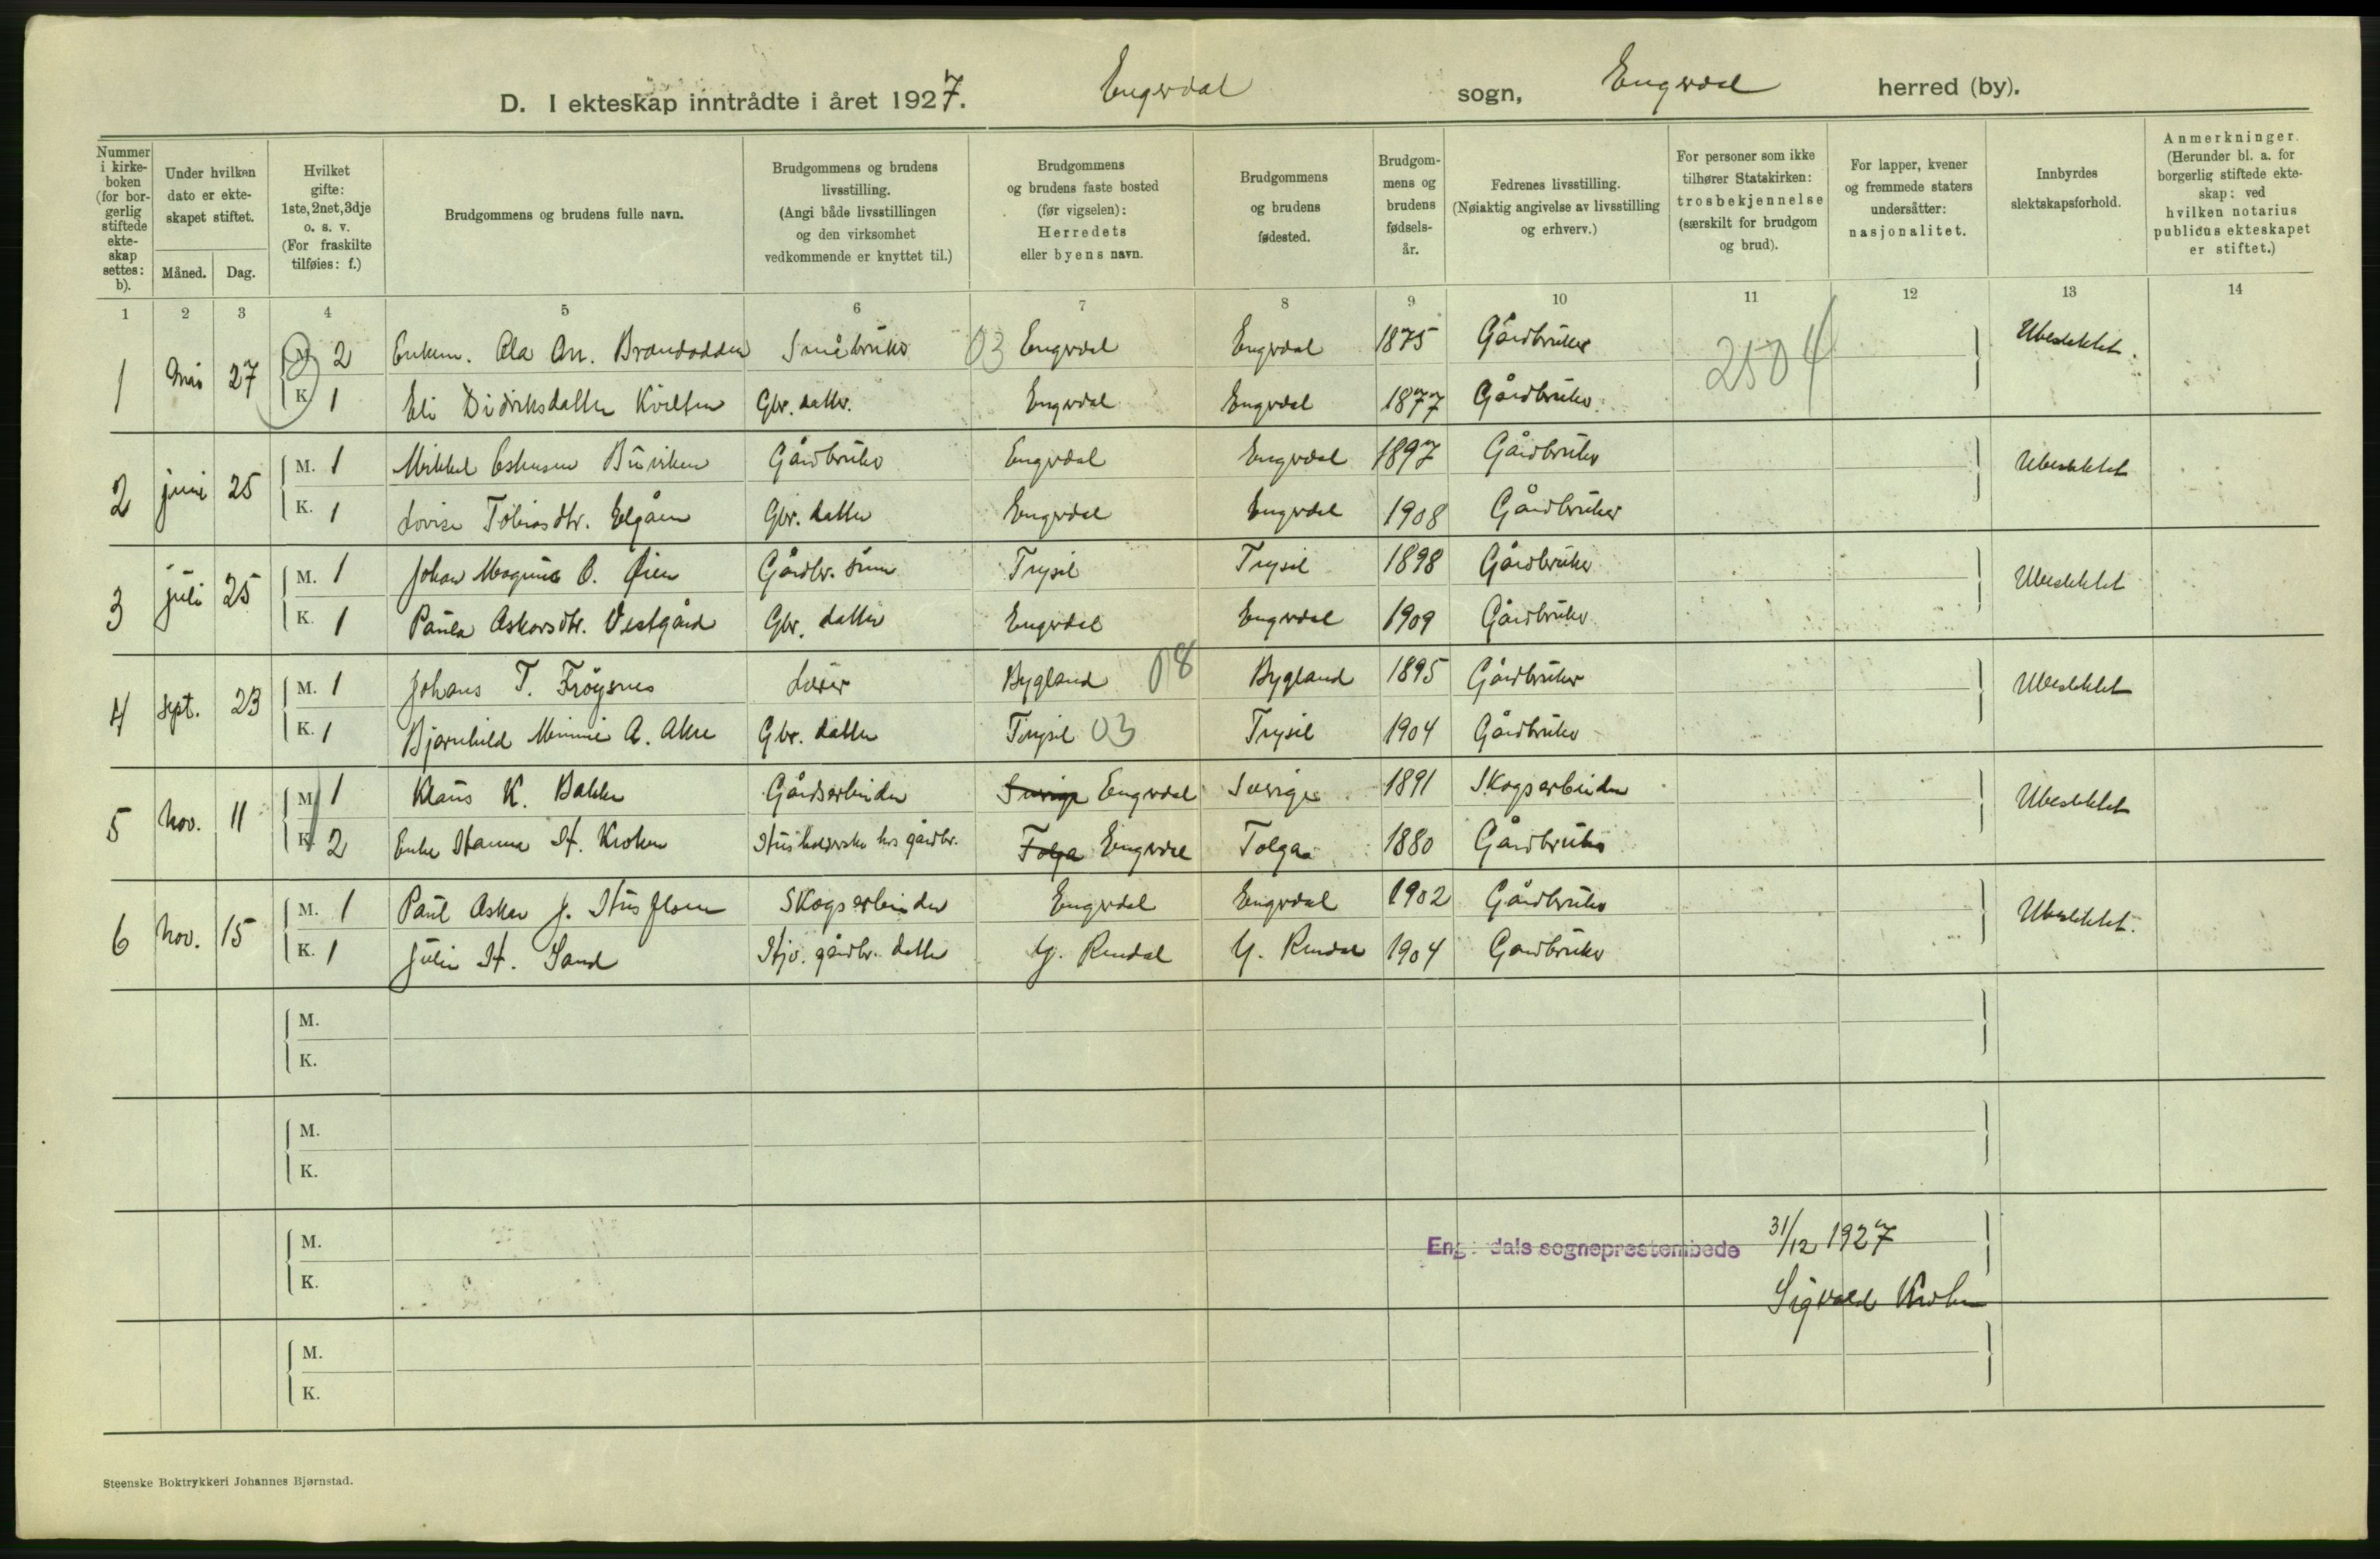 D. I ekteskap inntrådte i året 1927. Engerdal sogn, Engerdal herred (by).
Nummer i kirkeboken (for borgerlig stiftede ekteskap settes: b).
Under hvilken dato er ekteskapet stiftet.
Måned. Dag.
Hvilket gifte: 1ste, 2net, 3dje o. s. v. (For fraskilte tilføies: f.)
Brudgommens og brudens fulle navn.
Brudgommens og brudens livsstilling. (Angi både livsstillingen og den virksomhet vedkommende er knyttet til.)
Brudgommens og brudens faste bosted (før vigselen): Herredets eller byens navn.
Brudgommens og brudens fødested.
Brudgommens og brudens fødselsår.
Fedrenes livsstilling. (Nøiaktig angivelse av livsstilling og erhverv.)
For personer som ikke tilhører Statskirken: trosbekjennelse (særskilt for brudgom og brud).
For lapper, kvener og fremmede staters undersåtter: nasjonalitet.
Innbyrdes slektskapsforhold.
Anmerkninger. (Herunder bl. a. for borgerlig stiftede ekteskap: ved hvilken notarius publicus ekteskapet er stiftet.)
1 2 3 4 5 6 7 8 9 10 11 12 13 14
1 mai 27 M. 2 Enkem. Ola On. Brandodden Småbruker 03 Engerdal Engerdal 1875 Gårdbruker 2504 Ubeslektet.
K. 1 Eli Didriksdatter Kvilten Gbr. datter. Engerdal Engerdal 1877 Gårdbruker.
2 juni 25 M. 1 Mikkel Eskensen Burviken Gårdbruker Engerdal Engerdal 1897 Gårdbruker Ubeslektet
K. 1 Lovise Tobiasdtr. Elgåen Gbr. datter Engerdal Engerdal 1908 Gårdbruker
3 juli 25 M. 1 Johan Magnus O. Øien Gårdbr. sønn Trysil Trysil 1898 Gårdbruker Ubeslektet
K. 1 Paula Oskarsdtr. Vestgård Gbr. datter Engerdal Engerdal 1909 Gårdbruker
4 sept. 23 M. 1 Johans T. Frøysnes Lærer Bygland 08 Bygland 1895 Gårdbruker Ubeslektet
K. 1 Bjarnhild Minnie A. Akre Gbr. datter Trysil 03 Trysil 1904 Gårdbruker
5 Nov. 11 M. 1 Klaus K. Bakken Gårdsarbeider Sverige Engerdal Sverige 1891 Skogsarbeider Ubeslektet
K. 2 Enke Hanna H. Kroken Husholderske hos gårdbr. Tolga Engerdal Tolga 1880 Gårdbruker
6 Nov. 15 M. 1 Paul Oskar J. Husfloen Skogsarbeider Engerdal Engerdal 1902 Gårdbruker Ubeslektet.
K. 1 Julie H. Sand Hjv. gårdbr. datter Y. Rendal Y. Rendal 1904 Gardbruker
M.
K.
M.
K.
M.
Engerdals sogneprestembede 31/12 1927
K.
Sigvald Krohn
M.
K.
Steenske Boktrykkeri Johannes Bjørnstad.